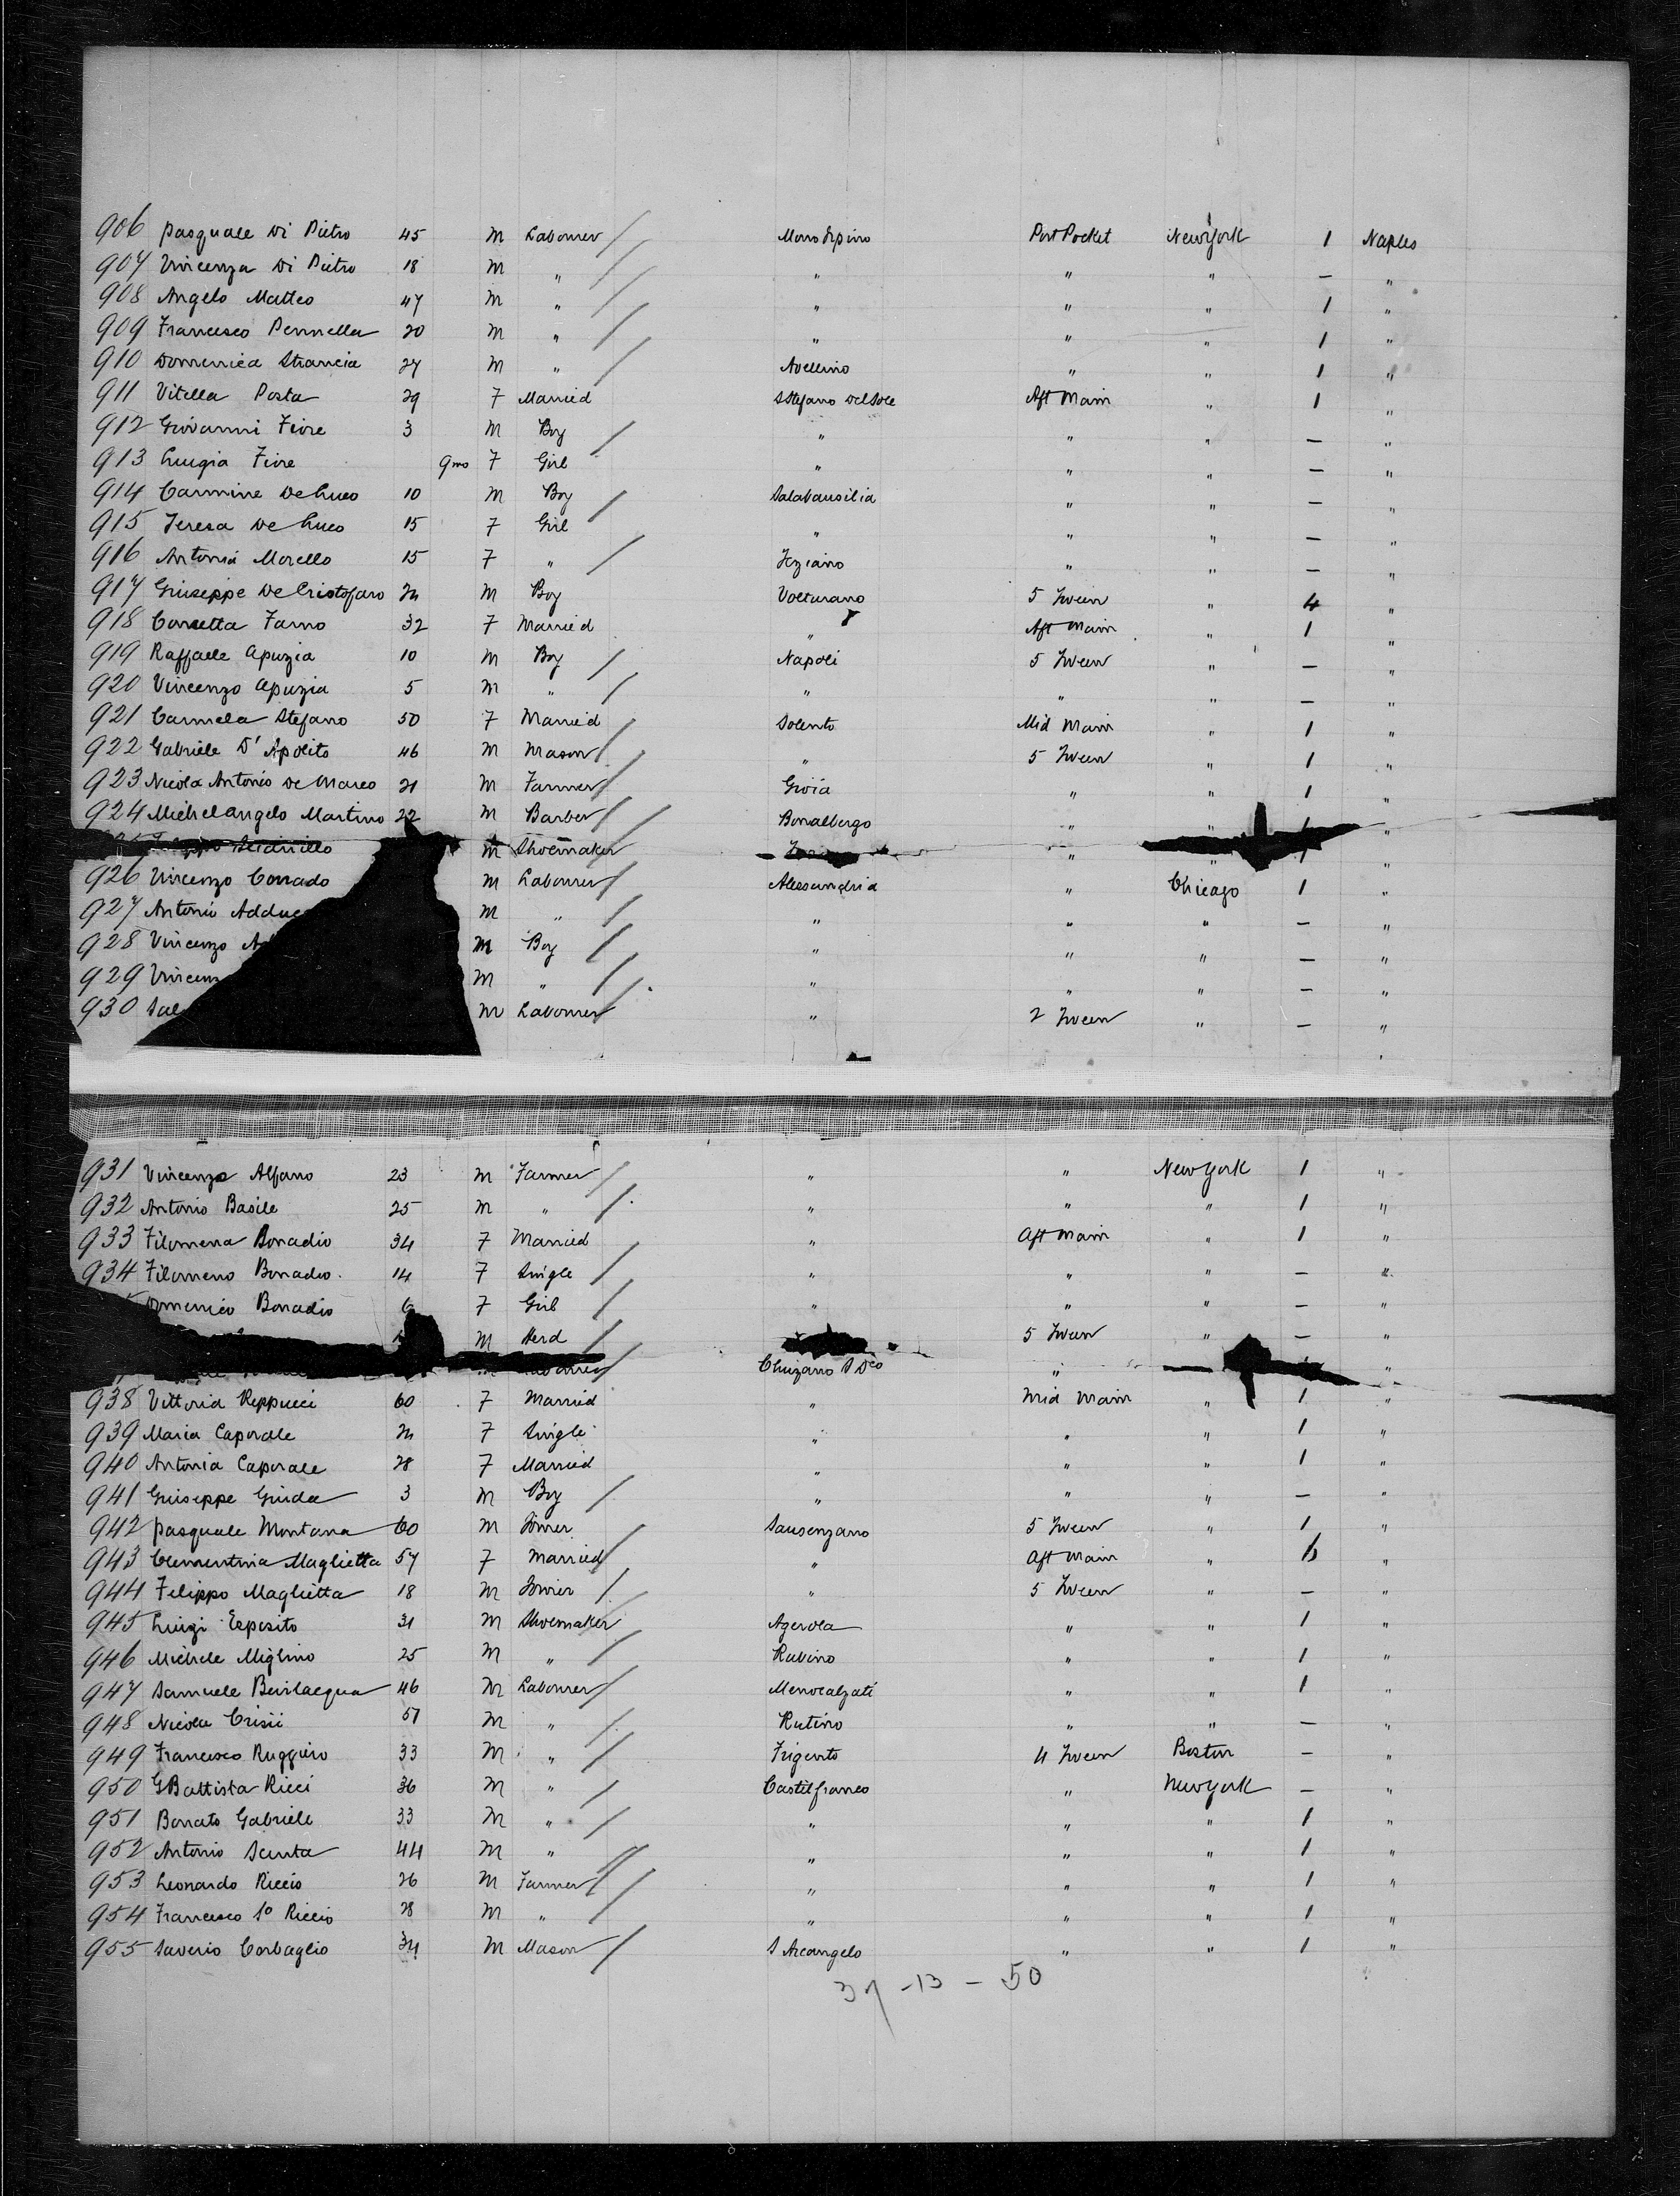 906 Pasquale Di Pietro 45 M Labourer Mono Irpino Port Pocket New York 1 Naples
907 Vincenza Di Pietro 18 M " " " " — "
908 Angelo Matteo 47 M " " " " 1 "
909 Francesco Pennella 20 M " " " " 1 "
910 Domenica Strancia 27 M " Avellino " " 1 "
911 Vitella Posta 29 F Married S Stefano Del Sole Aft Main " 1 "
912 Giovanni Fiore 3 M Boy " " " — "
913 Luigia Fiore 9mo F Girl " " " — "
914 Carmine De Luco 10 M Boy " " — "
915 Teresa De Luco 15 F Girl " " " — "
916 Antonia Morello 15 F " " " — "
917 Giuseppe De Cristofaro M Boy Volturano 5 Tween " 4 "
918 32 F Married " Aft Main " 1 "
919 Raffaele Apuzia 10 M Boy Napoli 5 Tween " — "
920 Vincenzo Apuzia 5 M " " " " — "
921 Carmela Stefano 50 F Married Solento Mid Main " 1 "
922 Gabriele D'Apolito 46 M Mason " 5 Tween " 1 "
923 Nicola Antonio De Marco 21 M Farmer Gioia " " 1 "
924 Michelangelo Martino 22 M Barber Bonalbergo " " 1 "
M Shoemaker " " 1 "
926 Vincenzo Corrado M Labourer Alessandria " Chicago 1 "
927 Antonio Adduc M " " " " — "
928 Vincenzo Ad M Boy " " " — "
929 Vincen M " " " " — "
930 Sal M Labourer " 2 Tween " — "
931 Vincenzo Alfano 23 M Farmer " " New York 1 "
932 Antonio Basile 25 M " " " " 1 "
933 Filomena Bonadio 34 F Married " Aft Main " 1 "
934 Filomeno Bonadio 14 F Single " " " — "
omenico Bonadio 6 F Girl " " " — "
M Herd 5 Tween " — "
Chiuzano S Dco " "
938 Vittoria Reppucci 60 F Married " Mid Main " 1 "
939 Maria Caporale F Single " " " 1 "
940 Antonia Caporale 28 F Married " " " 1 "
941 Giuseppe Giuda 3 M Boy " " " — "
942 Pasquale Montana 60 M 5 Tween " 1 "
943 Clementina Maglietta 57 F Married " Aft Main " "
944 Filippo Maglietta 18 M " 5 Tween " — "
945 Luigi Esposito 31 M Shoemaker Agerola " " 1 "
946 Michele Miglino 25 M " Rutino " " 1 "
947 Samuele Bevilacqua 46 M Labourer Menocalzati " " 1 "
948 Nicola Crisii 51 M " Rutino " " — "
949 Francesco Ruggiero 33 M " Frigento 4 Tween Boston — "
950 GBattista Ricci 36 M " Castelfranco " New York — "
951 Bonato Gabriele 33 M " " " " 1 "
952 Antonio Santa 44 M " " " " 1 "
953 Leonardo Riccio 26 M Farmer " " " 1 "
954 Francesco So Riccio 28 M " " " " 1 "
955 Saverio Corbaglio 34 M Mason S Arcangelo " " 1 "
37 - 13 - 50